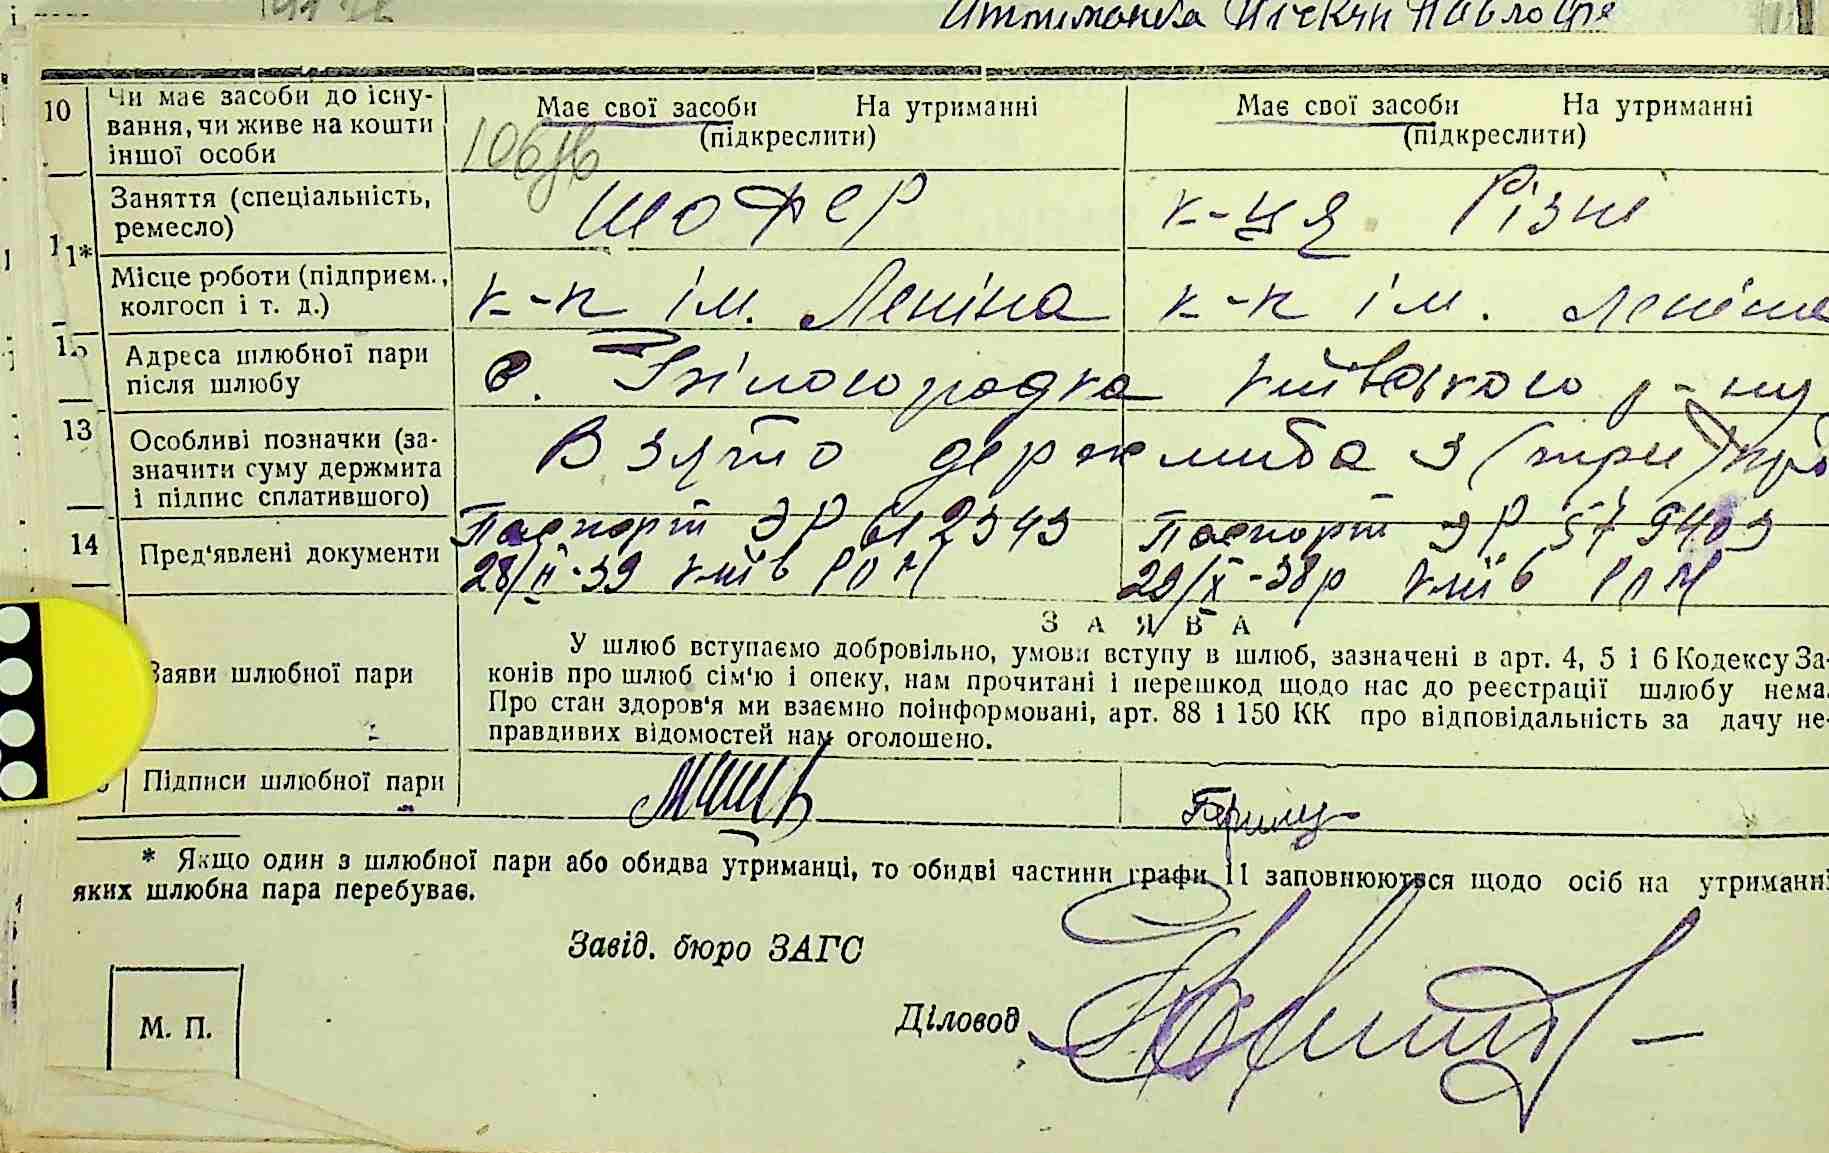 10 Чи має засоби до існу-
вання, чи живе на кошти
іншої особи
Має свої засоби На утриманні
(підкреслити)
Має свої засоби На утриманні
(підкреслити)
11*
Заняття (спеціальність,
ремесло)
шофер
к-ця Різне
Місце роботи (підприєм.,
колгосп і т. д.)
к-п ім. Леніна
к-п ім. Леніна
Адреса шлюбної пари
після шлюбу
с. Білогородка Київського р-ну
13 Особливі позначки (за-
значити суму держмита
і підпис сплатившого)
Взято держмита 3 (три) крб
14 Пред'явлені документи
Паспорт ЭР 612343
28/II-39 Київ РОМ
Паспорт ЭР 579403
29/X-38р Київ РОМ
Заяви шлюбної пари
ЗАЯВА
У шлюб вступаємо добровільно, умови вступу в шлюб, зазначені в арт. 4, 5 і 6 Кодексу За-
конів про шлюб сім'ю і опеку, нам прочитані і перешкод щодо нас до реєстрації шлюбу нема.
Про стан здоров'я ми взаємно поінформовані, арт. 88 і 150 КК про відповідальність за дачу не-
правдивих відомостей нам оголошено.
Підписи шлюбної пари
* Якщо один з шлюбної пари або обидва утриманці, то обидві частини графи 11 заповнюються щодо осіб на утриманні
яких шлюбна пара перебуває.
Завід. бюро ЗАГС
Діловод
М. П.